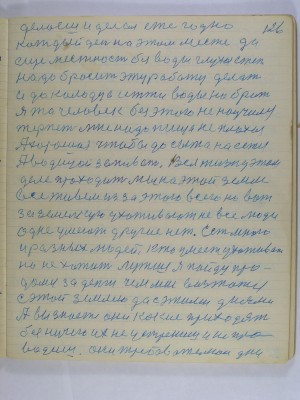 126
деласи и делал еже годно
каждый ден на этом месте да
еще местност без воды глухо степ
надо бросит эту работу делат
и до колодца итти воды на брит
я то человек без этого не научилу
терпет мне надо пища не плохая
А хорошая чтобы до сыта на сится
А водицой запиват. Вся жизн у этом
деле проходит мы на этой земли
все живем из за этого всего но вот
за землёю ухаживают не все люди
одне умеют другие нет. Сот много
и разных людей. кто умеет ухаживат
но не хотит лутше я пойду про-
дам за денг чем мы возжатся
с этой землею да с этими днями
А вы знаете они какие приходят
без ничего их не устрениш и не про-
водиш. они требоват дня